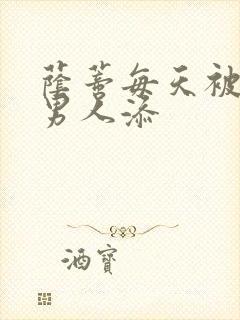 蔭蒂每天被
男人添
酒寶